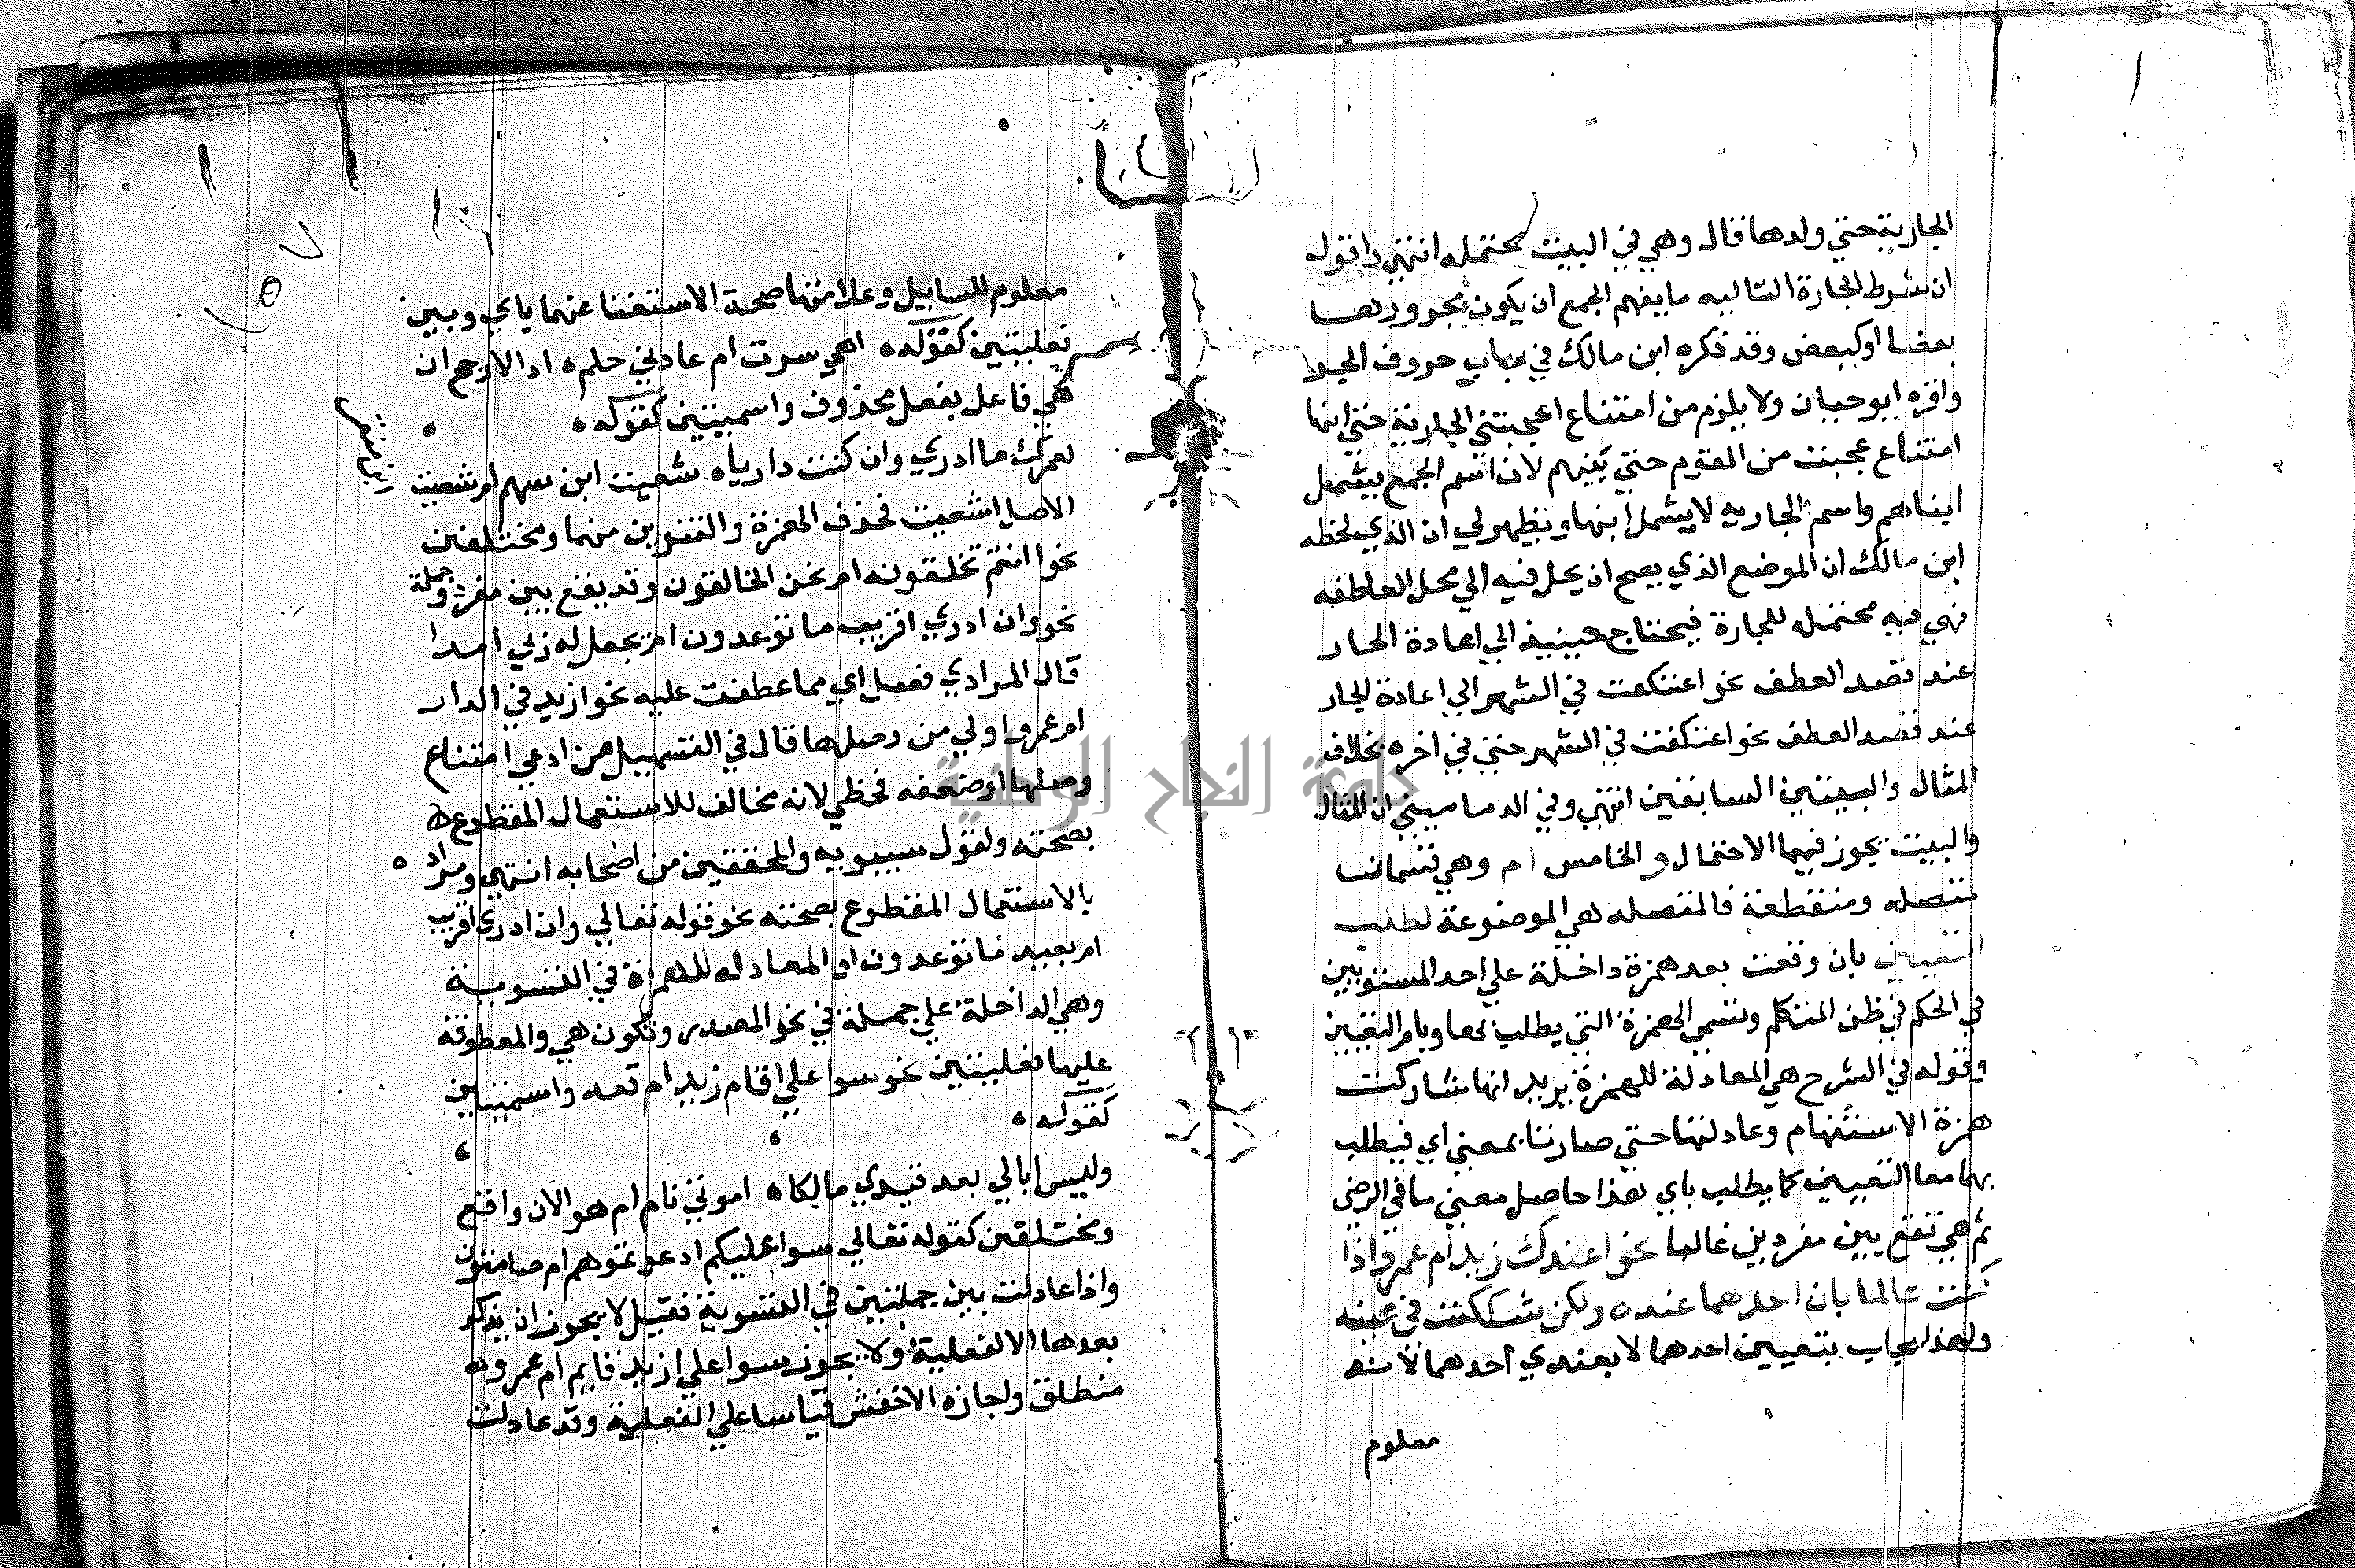 الجارية حتي ولدها قال وهي في البيت محتمله انتهي واقول
ان شرط الجارة التاليه ما يفهم الجمع ان يكون مجرورها
بعضا او كبعض وقد ذكره ابن مالك في باب حروف الجر
واقره ابو حيان ولا يلزم من امتناع اعجبتني الجارية حتي ابنها
امتناع عجبت من القوم حتي بنيهم لان اسم الجمع يشمل
ابناهم واسم الجاريه لا يشمل ابنها ويظهر لي ان الذي لحظه
ابن مالك ان الموضع الذي يصح ان يحل فيه الي محل العاطفه
فهي فيه محتمله للجارة فيحتاج حينيذ الي اعادة الجار
عند قصد العطف نحو اعتكفت في الشهر الي اعادة الجار
عند قصد العطف نحو اعتكفت في الشهر حتي في اخره بخلاف
المثال والبيتين السابقين انتهي وفي الدماميني ان المثال
والبيت يجوز فيهما الاحتمال والخامس ام وهي قسمان
متصله ومنقطعة فالمتصله هي الموضوعة لطلب
التعيين بان وقعت بعد همزة داخلة علي احد المستويين
في الحكم في ظن المتكلم وتسمي الهمزة التي يطلب بها وبام التعيين
وقوله في الشرح هي المعادلة للهمزة يريد انها شاركت
همزة الاستفهام وعادلتها حتي صارتا بمعني اي فيطلب
بهما معا التعيين كما يطلب باي هذا حاصل معني ما في الرضي
ثم هي تقع بين مفردين غالبا نحو اعندك زيد ام عمرو اذا
كنت عالما بان احدهما عنده ولكن شككت في عينه
ولهذا يجاب بتعيين احدهما لا بعندي احدهما لانه
معلوم
معلوم للسايل وعلامتها صحة الاستغنا عنهما باي وبين
فعليتين كقوله اهي سرت ام عادني حلم اذ الارجح ان
هي فاعل بفعل محذوف واسميتين كقوله
لعمرك ما ادري وان كنت داريا شعيث ابن سهم ام شعيث
ابن منقر
الاصل اشعيث فحذف الهمزة والتنوين منهما ومختلفين
نحو اانتم تخلقونه ام نحن الخالقون وقد يقع بين مفرد وجملة
نحو وان ادري اقريب ما توعدون ام يجعل له ربي امدا
قال المرادي فصل اي مما عطفت عليه نحو ازيد في الدار
ام عمرو اولي من وصلها قال في التسهيل من ادعي امتناع
وصلها او ضعفه فخطي لانه مخالف للاستعمال المقطوع
بصحته ولقول سيبويه والمحققين من اصحابه انتهي ومراد
بالاستعمال المقطوع بصحته نحو قوله تعالي وان ادري اقريب
ام بعيد ما توعدون او المعادله للهمزة في التسوية
وهي الداخلة علي جملة في نحو المصدر وتكون هي والمعطوفة
عليها فعليتين نحو سوا علي اقام زيد ام قعد واسميتين
كقوله
وليس ابالي بعد فقدي مالكا اموتي نام ام هو الان واقع
ومختلفين كقوله تعالي سوا عليكم ادعوتموهم ام صامتون
واذا عادلت بين جملتين في التسوية فقيل لا يجوز ان يذكر
بعدها الا الفعلية ولا يجوز سوا علي ازيد قايم ام عمرو
منطلق واجازه الاخفش قياسا علي الفعلية وقد عادلت
جامعة النجاح الوطنية